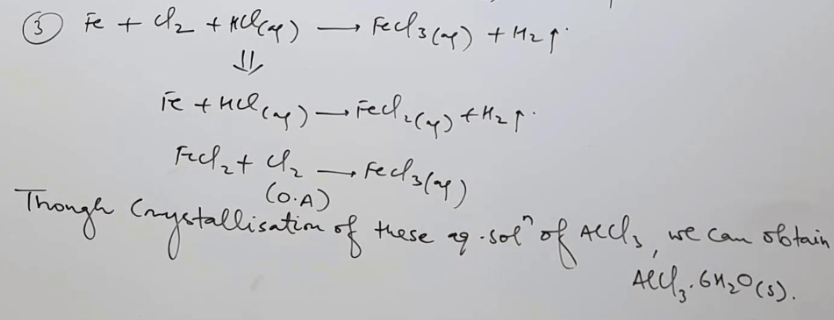 ③ Fe + Cl₂ + HCl(aq) ⟶ FeCl₃(aq) + H₂↑
⇓
Fe + HCl(aq) ⟶ FeCl₂(aq) + H₂↑
FeCl₂ + Cl₂ ⟶ FeCl₃(aq)
(O.A)
Though Crystallisation of these aq. solⁿ of AlCl₃, we can obtain
AlCl₃.6H₂O(s).